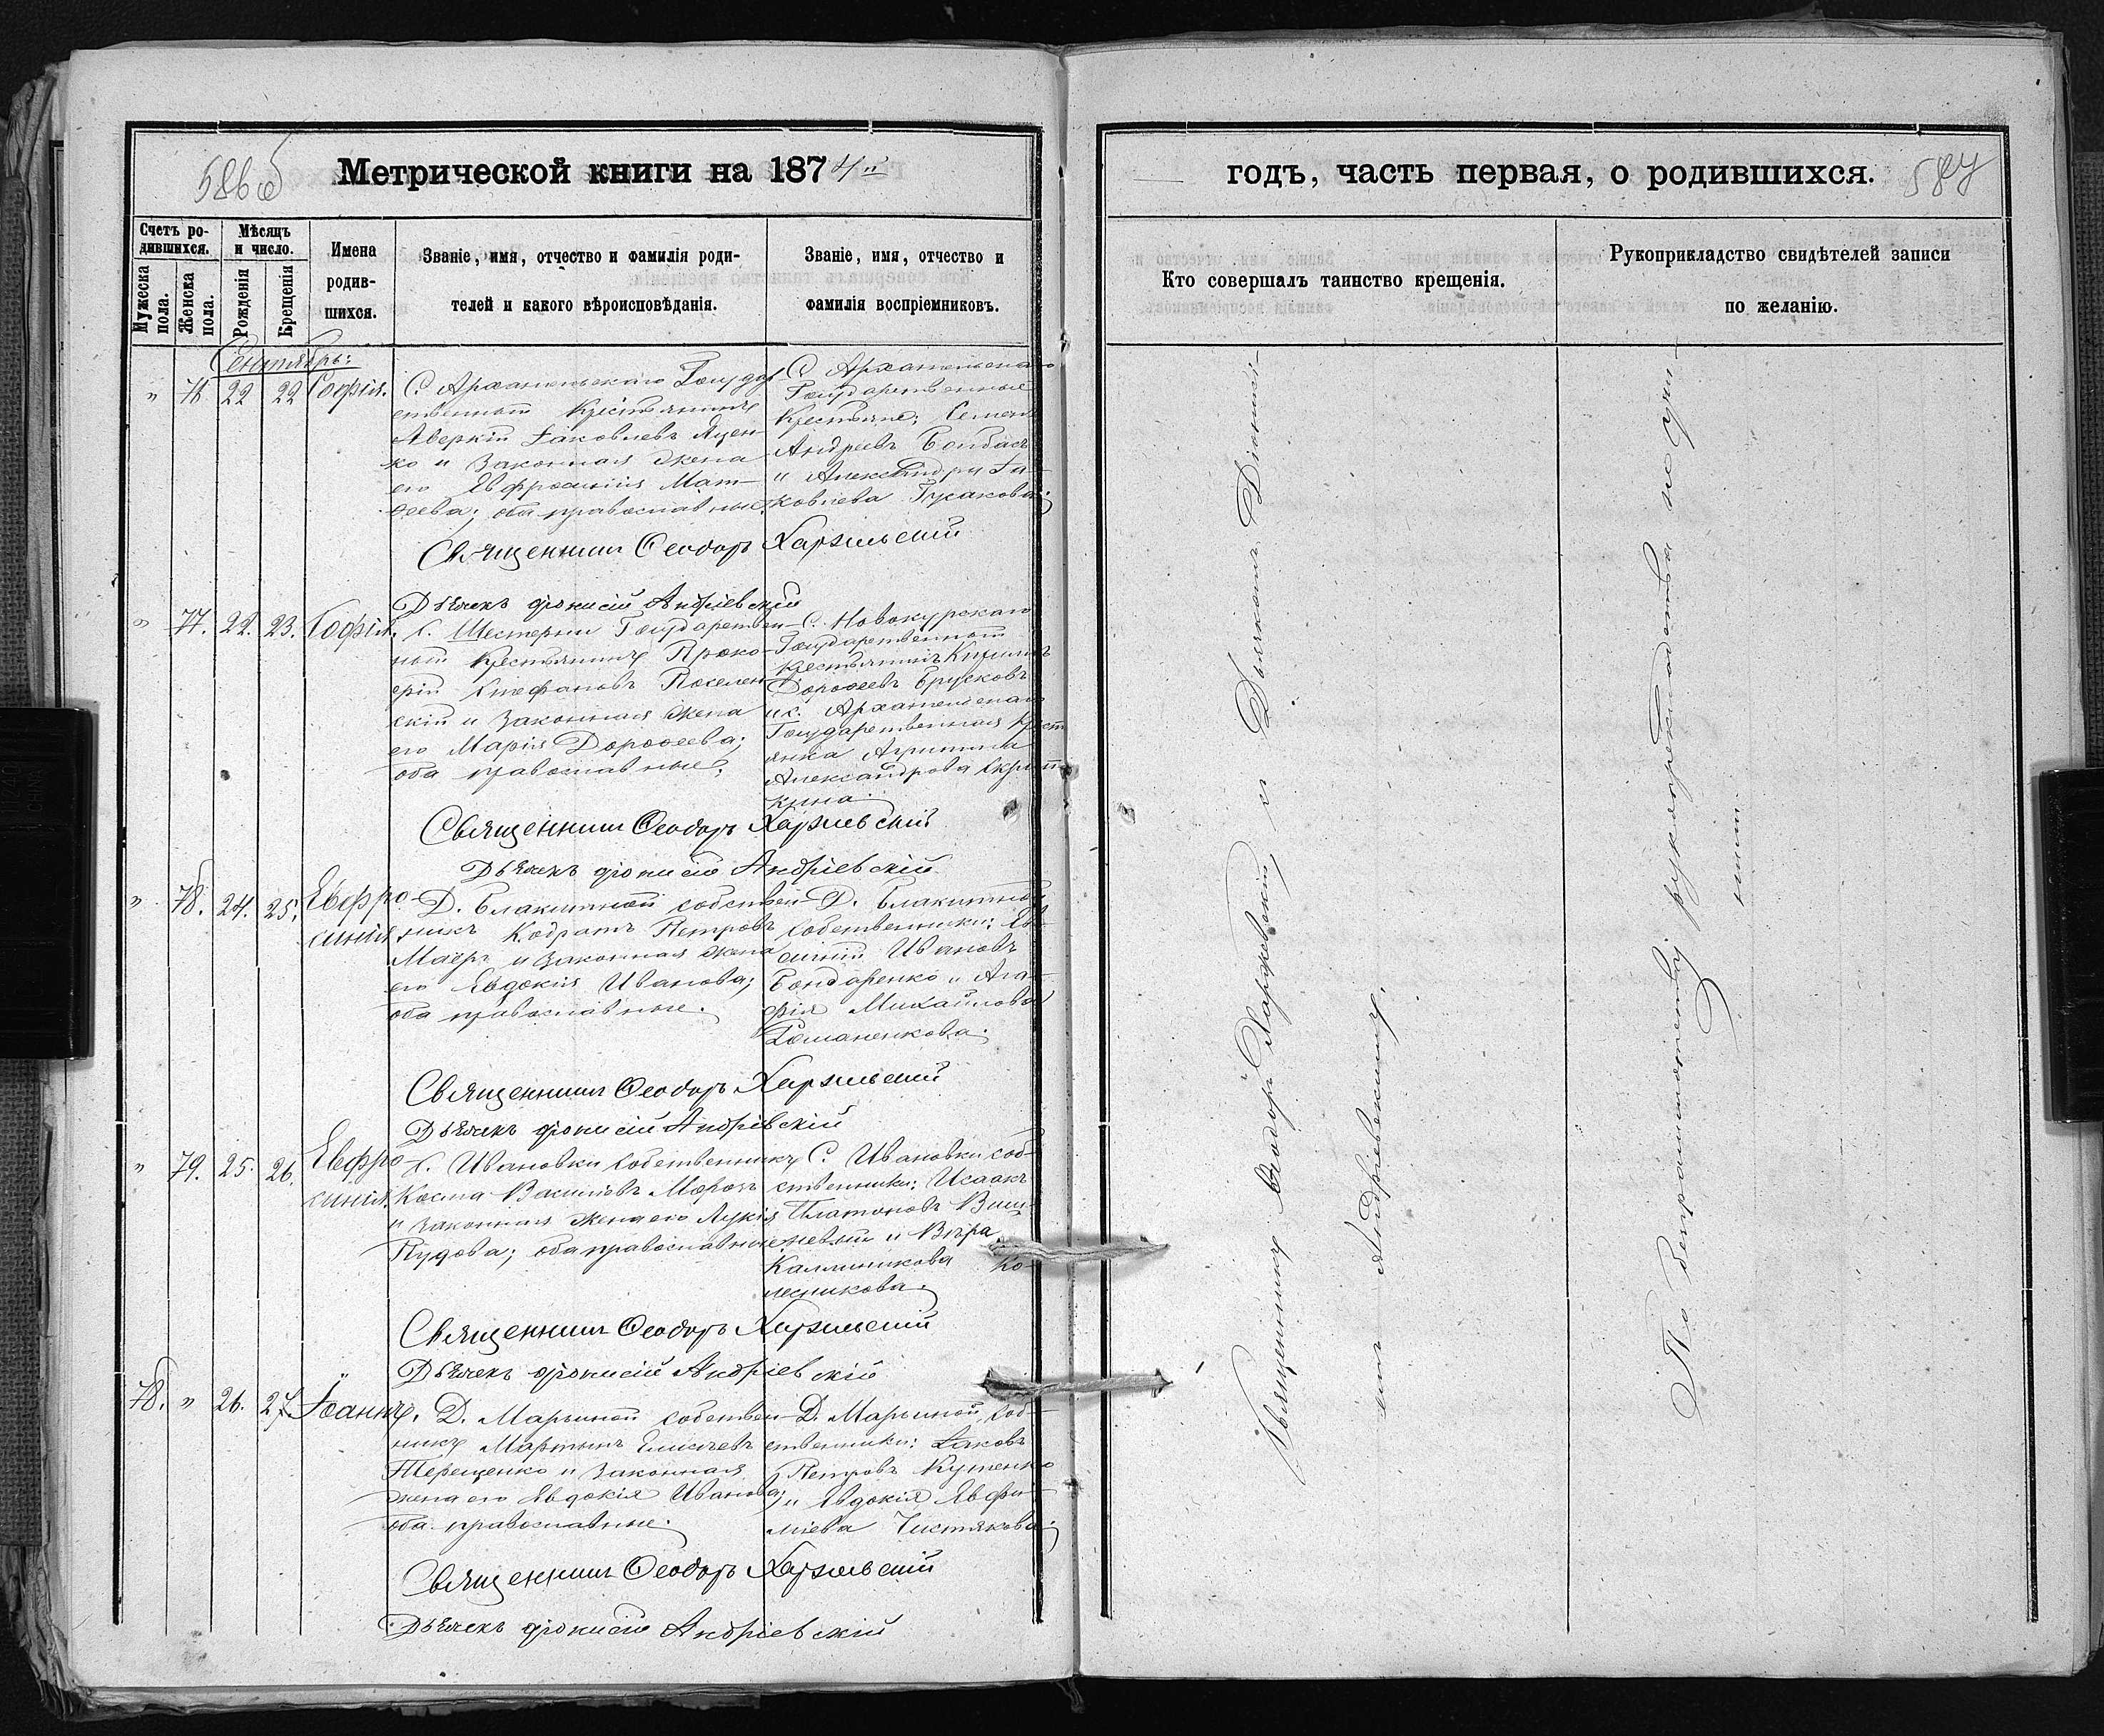 586 об
Метрической книги на 1874й
Счетъ ро-
дившихся.
Мужеска пола.
Женска пола.
Мѣсяцъ
и число.
Рожденія
Крещенія
Имена
родив-
шихся.
Званіе, имя, отчество и фамилія роди-
телей и какого вѣроисповѣданія.
Званіе, имя, отчество и
фамилія воспріемниковъ.
Сентябрь:
" 76 22 22 Софія.
С. Архангельскаго Государ-
ственный Крестьянинъ
Аверкій Іаковлевъ Яцен-
ко и Законная жена
его Евфросинія Мат-
ѳеева; оба православные.
С. Архангельскаго
Государственные
Крестьяне: Семенъ
Андреевъ Бондасъ
и Александра Іа-
ковлева Гусакова.
Священникъ Ѳеодоръ Харжевскій
Дьячекъ Діонисій Андріевскій
" 77. 22. 23. Софія.
С. Шестерни Государствен-
ный Крестьянинъ Проко-
ій Стефановъ
скій и Законная жена
его Марія Дороѳеева;
оба православные.
С. Новокурскаго
Государственный
Крестьянинъ Кириллъ
Дороѳеевъ Брусковъ
и с. Архангельскаго
Государственная Крест
янка Агрипина
Александрова
кина.
Священникъ Ѳеодоръ Харжевскій
Дьячекъ Діонисій Андріевскій
" 78. 24. 25. Евфро-
синія.
Д. Блакитной собствен-
никъ Кодратъ Петровъ
и Законная жена
его Евдокія Иванова;
оба православные.
Д. Блакитной
собственники: Ев-
Ивановъ
Бондаренко и Ага-
фія Михайлова
Романенкова.
Священникъ Ѳеодоръ Харжевскій
Дьячекъ Діонисій Андріевскій
" 79. 25. 26. Евфро-
синія.
С. Ивановки Собственникъ
Косма Васильевъ Морозъ
и Законная жена его Лукія
Пудова; оба православные.
С. Ивановки соб-
ственники: Исаакъ
Платоновъ Виш-
невый и Вѣра
Каллиникова Ко-
лесникова.
Священникъ Ѳеодоръ Харжевскій
Дьячекъ Діонисій Андріевскій
78. " 26. 27. Іоаннъ.
Д. Марьиной собствен-
никъ Мартынъ Елисѣевъ
Терещенко и Законная
жена его Евдокія Иванова;
оба православные.
Д. Марьиной Соб-
ственники: Іаковъ
Петровъ Куценко
и Евдокія Евфи-
міева Чистякова.
Священникъ Ѳеодоръ Харжевскій
Дьячекъ Діонисій Андріевскій
годъ, часть первая, о родившихся.
587
Кто совершалъ таинство крещенія.
Рукоприкладство свидѣтелей записи
по желанію.
Священникъ Ѳеодоръ Харжевскій и Дьячекъ Діонисій
Андріевскій.
По безграмотству рукоприкладства не учи-
нили.